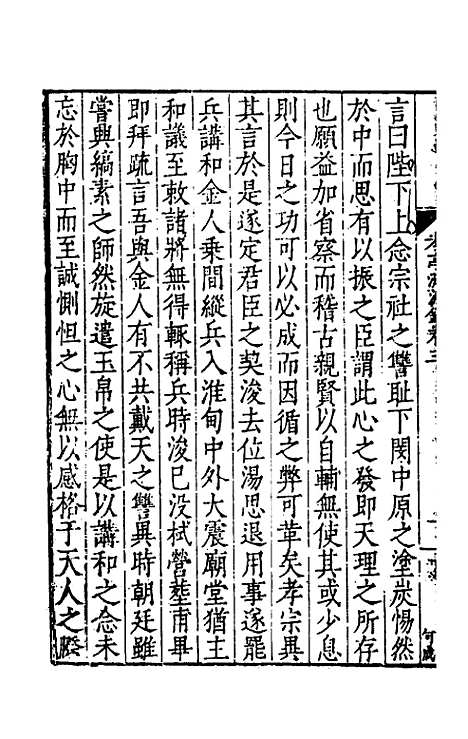 言曰陛下上念宗社之讐耻下閔中原之塗炭惕然
於中而思有以振之臣謂此心之發即天理之所存
也願益加省察而稽古親賢以自輔無使其或少息
則今日之功可以必成而因循之弊可革矣孝宗異
其言於是遂定君臣之契浚去位湯思退用事遂罷
兵講和金人乗間縱兵入淮甸中外大震廟堂猶主
和議至敕諸將無得輒稱兵時浚已没栻營塟甫畢
即拜疏言吾與金人有不共戴天之讐異時朝廷雖
嘗興縞素之師然旋遣玉帛之使是以講和之念未
忘於胸中而至誠惻怛之心無以感格于天人之際